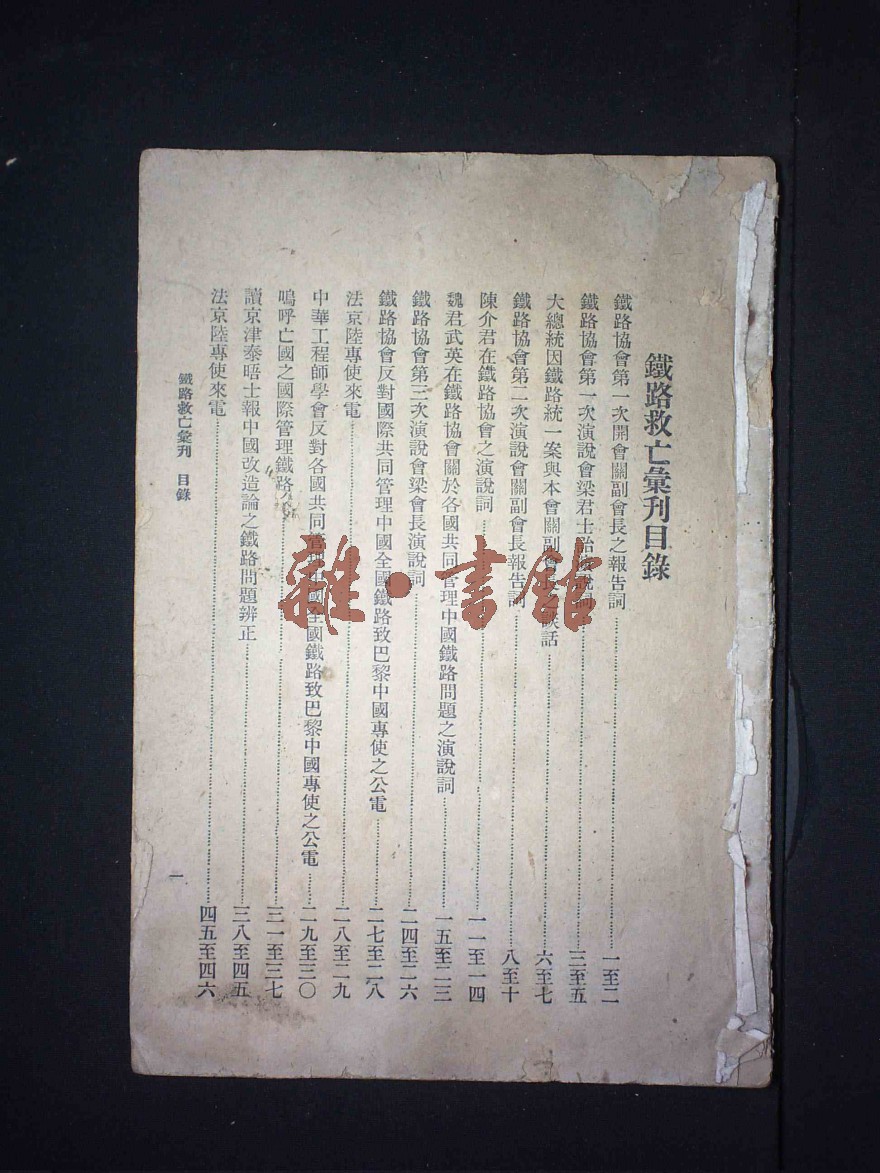 鐵路救亡彙刊目錄
鐵路協會第一次開會關副會長之報告詞 一至二
鐵路協會第一次演說會梁君士詒演說詞 三至五
大總統因鐵路統一案與本會關副會長之談話 六至七
鐵路協會第二次演說會關副會長報告詞 八至十
陳介君在鐵路協會之演說詞 一一至一四
魏君武英在鐵路協會關於各國共同管理中國鐵路問題之演說詞 一五至二三
鐵路協會第三次演說會梁會長演說詞 二四至二六
鐵路協會反對國際共同管理中國全國鐵路致巴黎中國專使之公電 二七至二八
法京陸專使來電 二八至二九
中華工程師學會反對各國共同管理中國全國鐵路致巴黎中國專使之公電 二九至三〇
嗚呼亡國之國際管理鐵路 三一至三七
讀京津泰晤士報中國改造論之鐵路問題辨正 三八至四五
法京陸專使來電 四五至四六
鐵路救亡彙刊 目錄
一
雜·書館